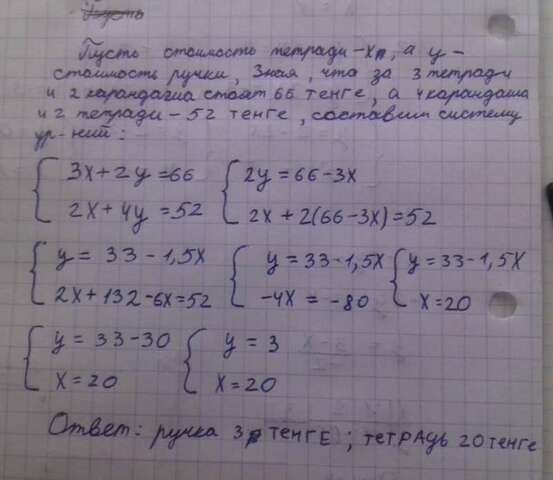 Пусть стоимость тетради - x, а y -
стоимость ручки, Зная, что за 3 тетради
и 2 карандаша стоят 66 тенге, а 4 карандаша
и 2 тетради - 52 тенге, составим систему
ур-ний:
3x + 2y = 66 2y = 66 - 3x
2x + 4y = 52 2x + 2(66 - 3x) = 52
y = 33 - 1,5x y = 33 - 1,5x y = 33 - 1,5x
2x + 132 - 6x = 52 -4x = -80 x = 20
y = 33 - 30 y = 3
x = 20 x = 20
Ответ: ручка 3 тенге; тетрадь 20 тенге